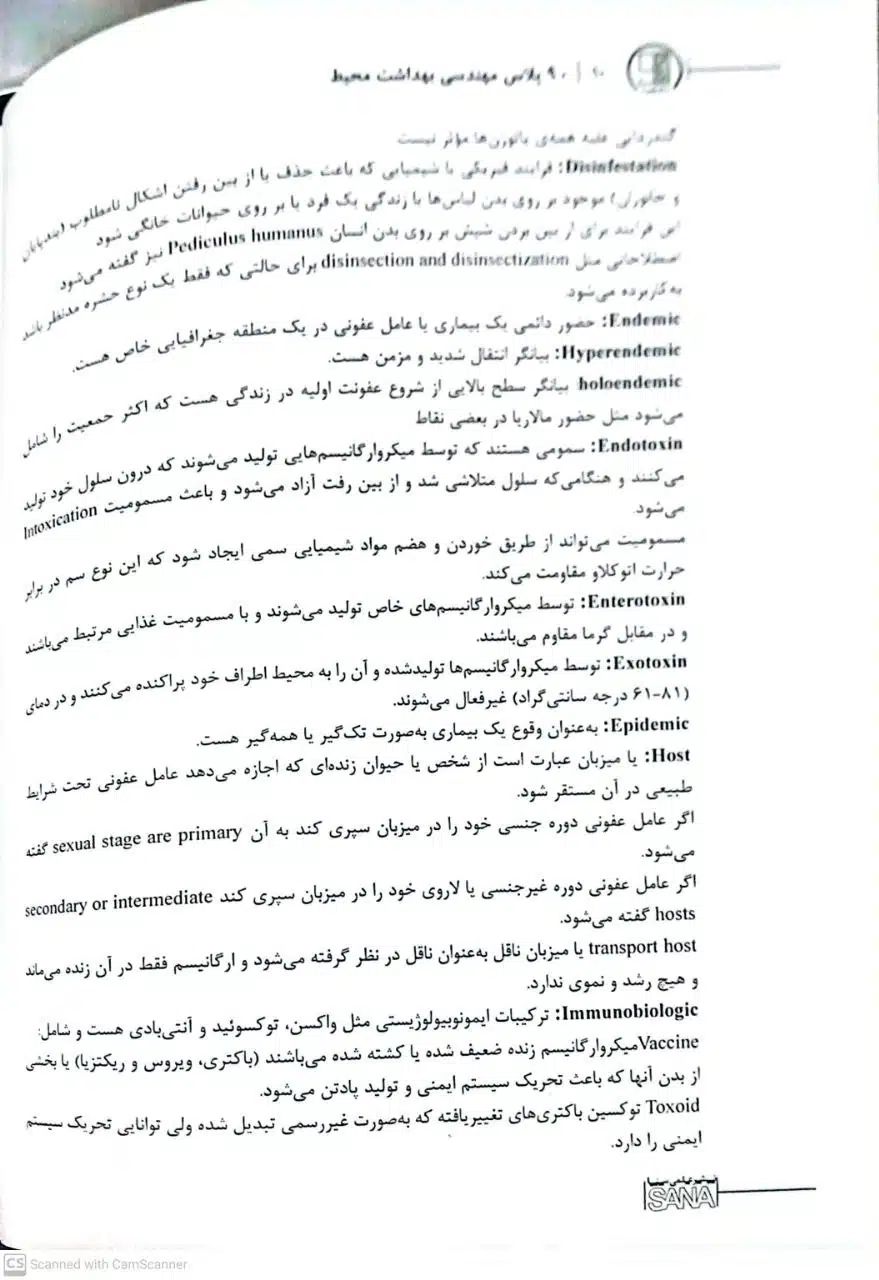 ۱۰ | ۹۰ پلاس مهندسی بهداشت محیط
گندزدایی علیه همه‌ی پاتوژن‌ها مؤثر نیست
Disinfestation: فرایند فیزیکی یا شیمیایی که باعث حذف یا از بین رفتن اشکال نامطلوب (بندپایان
و جانوران) موجود بر روی بدن لباس‌ها یا زندگی یک فرد یا بر روی حیوانات خانگی شود
این فرایند برای از بین بردن شپش بر روی بدن انسان Pediculus humanus نیز گفته می‌شود
اصطلاحاتی مثل disinsection and disinsectization برای حالتی که فقط یک نوع حشره مدنظر باشد
به کاربرده می‌شود.
Endemic: حضور دائمی یک بیماری یا عامل عفونی در یک منطقه جغرافیایی خاص هست.
Hyperendemic: بیانگر انتقال شدید و مزمن هست.
holoendemic بیانگر سطح بالایی از شروع عفونت اولیه در زندگی هست که اکثر جمعیت را شامل
می‌شود مثل حضور مالاریا در بعضی نقاط
Endotoxin: سمومی هستند که توسط میکروارگانیسم‌هایی تولید می‌شوند که درون سلول خود تولید
می‌کنند و هنگامی‌که سلول متلاشی شد و از بین رفت آزاد می‌شود و باعث مسمومیت Intoxication
می‌شود.
مسمومیت می‌تواند از طریق خوردن و هضم مواد شیمیایی سمی ایجاد شود که این نوع سم در برابر
حرارت اتوکلاو مقاومت می‌کند.
Enterotoxin: توسط میکروارگانیسم‌های خاص تولید می‌شوند و با مسمومیت غذایی مرتبط می‌باشند
و در مقابل گرما مقاوم می‌باشند.
Exotoxin: توسط میکروارگانیسم‌ها تولیدشده و آن را به محیط اطراف خود پراکنده می‌کنند و در دمای
(۶۱-۸۱ درجه سانتی‌گراد) غیرفعال می‌شوند.
Epidemic: به‌عنوان وقوع یک بیماری به‌صورت تک‌گیر یا همه‌گیر هست.
Host: یا میزبان عبارت است از شخص یا حیوان زنده‌ای که اجازه می‌دهد عامل عفونی تحت شرایط
طبیعی در آن مستقر شود.
اگر عامل عفونی دوره جنسی خود را در میزبان سپری کند به آن sexual stage are primary گفته
می‌شود.
اگر عامل عفونی دوره غیرجنسی یا لاروی خود را در میزبان سپری کند secondary or intermediate
hosts گفته می‌شود.
transport host یا میزبان ناقل به‌عنوان ناقل در نظر گرفته می‌شود و ارگانیسم فقط در آن زنده می‌ماند
و هیچ رشد و نموی ندارد.
Immunobiologic: ترکیبات ایمونوبیولوژیستی مثل واکسن، توکسوئید و آنتی‌بادی هست و شامل:
Vaccineمیکروارگانیسم زنده ضعیف شده یا کشته شده می‌باشند (باکتری، ویروس و ریکتزیا) یا بخشی
از بدن آنها که باعث تحریک سیستم ایمنی و تولید پادتن می‌شود.
Toxoid توکسین باکتری‌های تغییریافته که به‌صورت غیررسمی تبدیل شده ولی توانایی تحریک سیستم
ایمنی را دارد.
نشر علمی سنا
SANA
CS Scanned with CamScanner